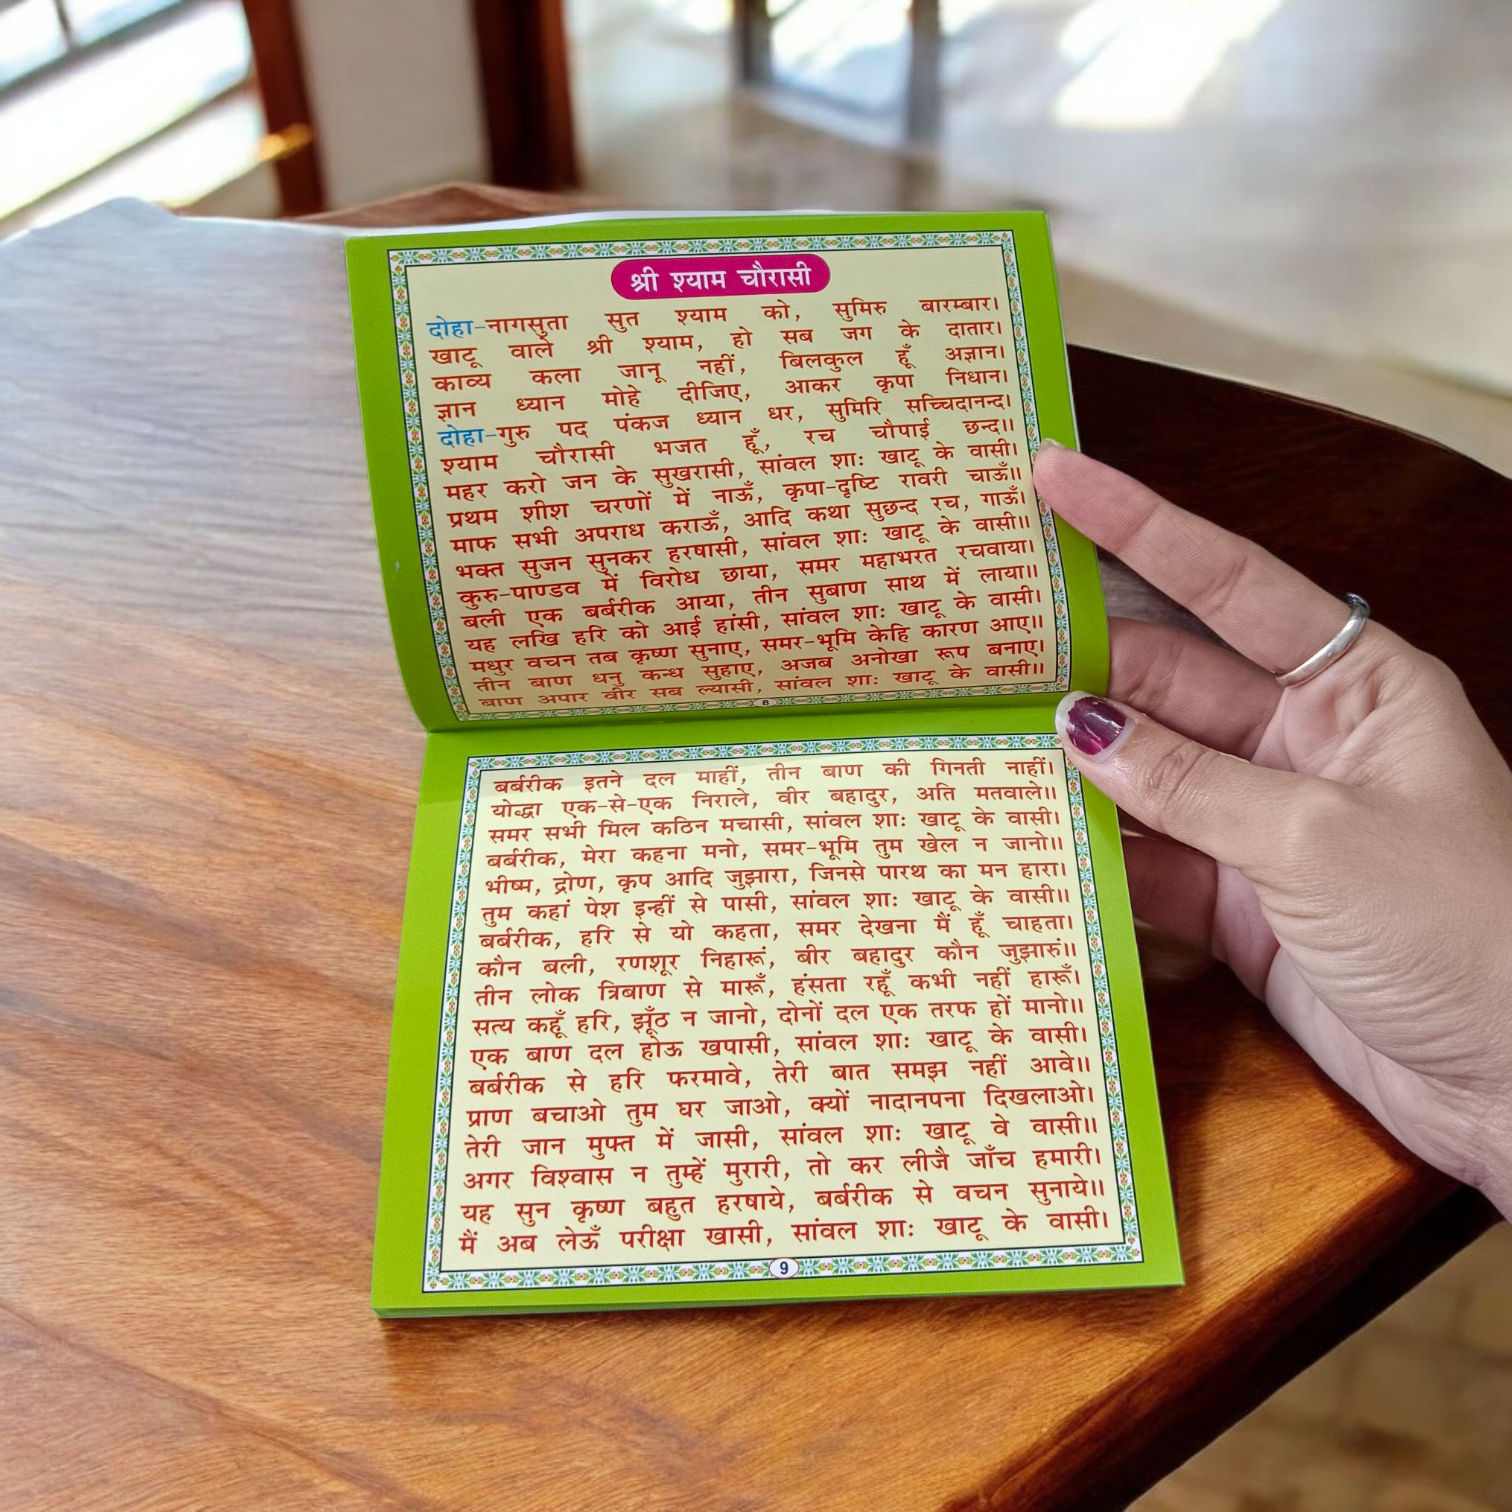 श्री श्याम चौरासी
दोहा-नागसुता सुत श्याम को, सुमिरु बारम्बार।
खाटू वाले श्री श्याम, हो सब जग के दातार।
काव्य कला जानू नहीं, बिलकुल हूँ अज्ञान।
ज्ञान ध्यान मोहे दीजिए, आकर कृपा निधान।
दोहा-गुरु पद पंकज ध्यान धर, सुमिरि सच्चिदानन्द।
श्याम चौरासी भजत हूँ, रच चौपाई छन्द॥
महर करो जन के सुखरासी, सांवल शाः खाटू के वासी।
प्रथम शीश चरणों में नाऊँ, कृपा-दृष्टि रावरी चाऊँ॥
माफ सभी अपराध कराऊँ, आदि कथा सुछन्द रच, गाऊँ।
भक्त सुजन सुनकर हरषासी, सांवल शाः खाटू के वासी॥
कुरु-पाण्डव में विरोध छाया, समर महाभरत रचवाया।
बली एक बर्बरीक आया, तीन सुबाण साथ में लाया॥
यह लखि हरि को आई हांसी, सांवल शाः खाटू के वासी।
मधुर वचन तब कृष्ण सुनाए, समर-भूमि केहि कारण आए॥
तीन बाण धनु कन्ध सुहाए, अजब अनोखा रूप बनाए।
बाण अपार वीर सब ल्यासी, सांवल शाः खाटू के वासी॥
8
बर्बरीक इतने दल माहीं, तीन बाण की गिनती नाहीं।
योद्धा एक-से-एक निराले, वीर बहादुर, अति मतवाले॥
समर सभी मिल कठिन मचासी, सांवल शाः खाटू के वासी।
बर्बरीक, मेरा कहना मनो, समर-भूमि तुम खेल न जानो॥
भीष्म, द्रोण, कृप आदि जुझारा, जिनसे पारथ का मन हारा।
तुम कहां पेश इन्हीं से पासी, सांवल शाः खाटू के वासी॥
बर्बरीक, हरि से यो कहता, समर देखना मैं हूँ चाहता।
कौन बली, रणशूर निहारूं, बीर बहादुर कौन जुझारुं॥
तीन लोक त्रिबाण से मारूँ, हंसता रहूँ कभी नहीं हारूँ।
सत्य कहूँ हरि, झूँठ न जानो, दोनों दल एक तरफ हों मानो॥
एक बाण दल होऊ खपासी, सांवल शाः खाटू के वासी।
बर्बरीक से हरि फरमावे, तेरी बात समझ नहीं आवे॥
प्राण बचाओ तुम घर जाओ, क्यों नादानपना दिखलाओ।
तेरी जान मुफ्त में जासी, सांवल शाः खाटू वे वासी॥
अगर विश्वास न तुम्हें मुरारी, तो कर लीजै जाँच हमारी।
यह सुन कृष्ण बहुत हरषाये, बर्बरीक से वचन सुनाये॥
मैं अब लेऊँ परीक्षा खासी, सांवल शाः खाटू के वासी।
9